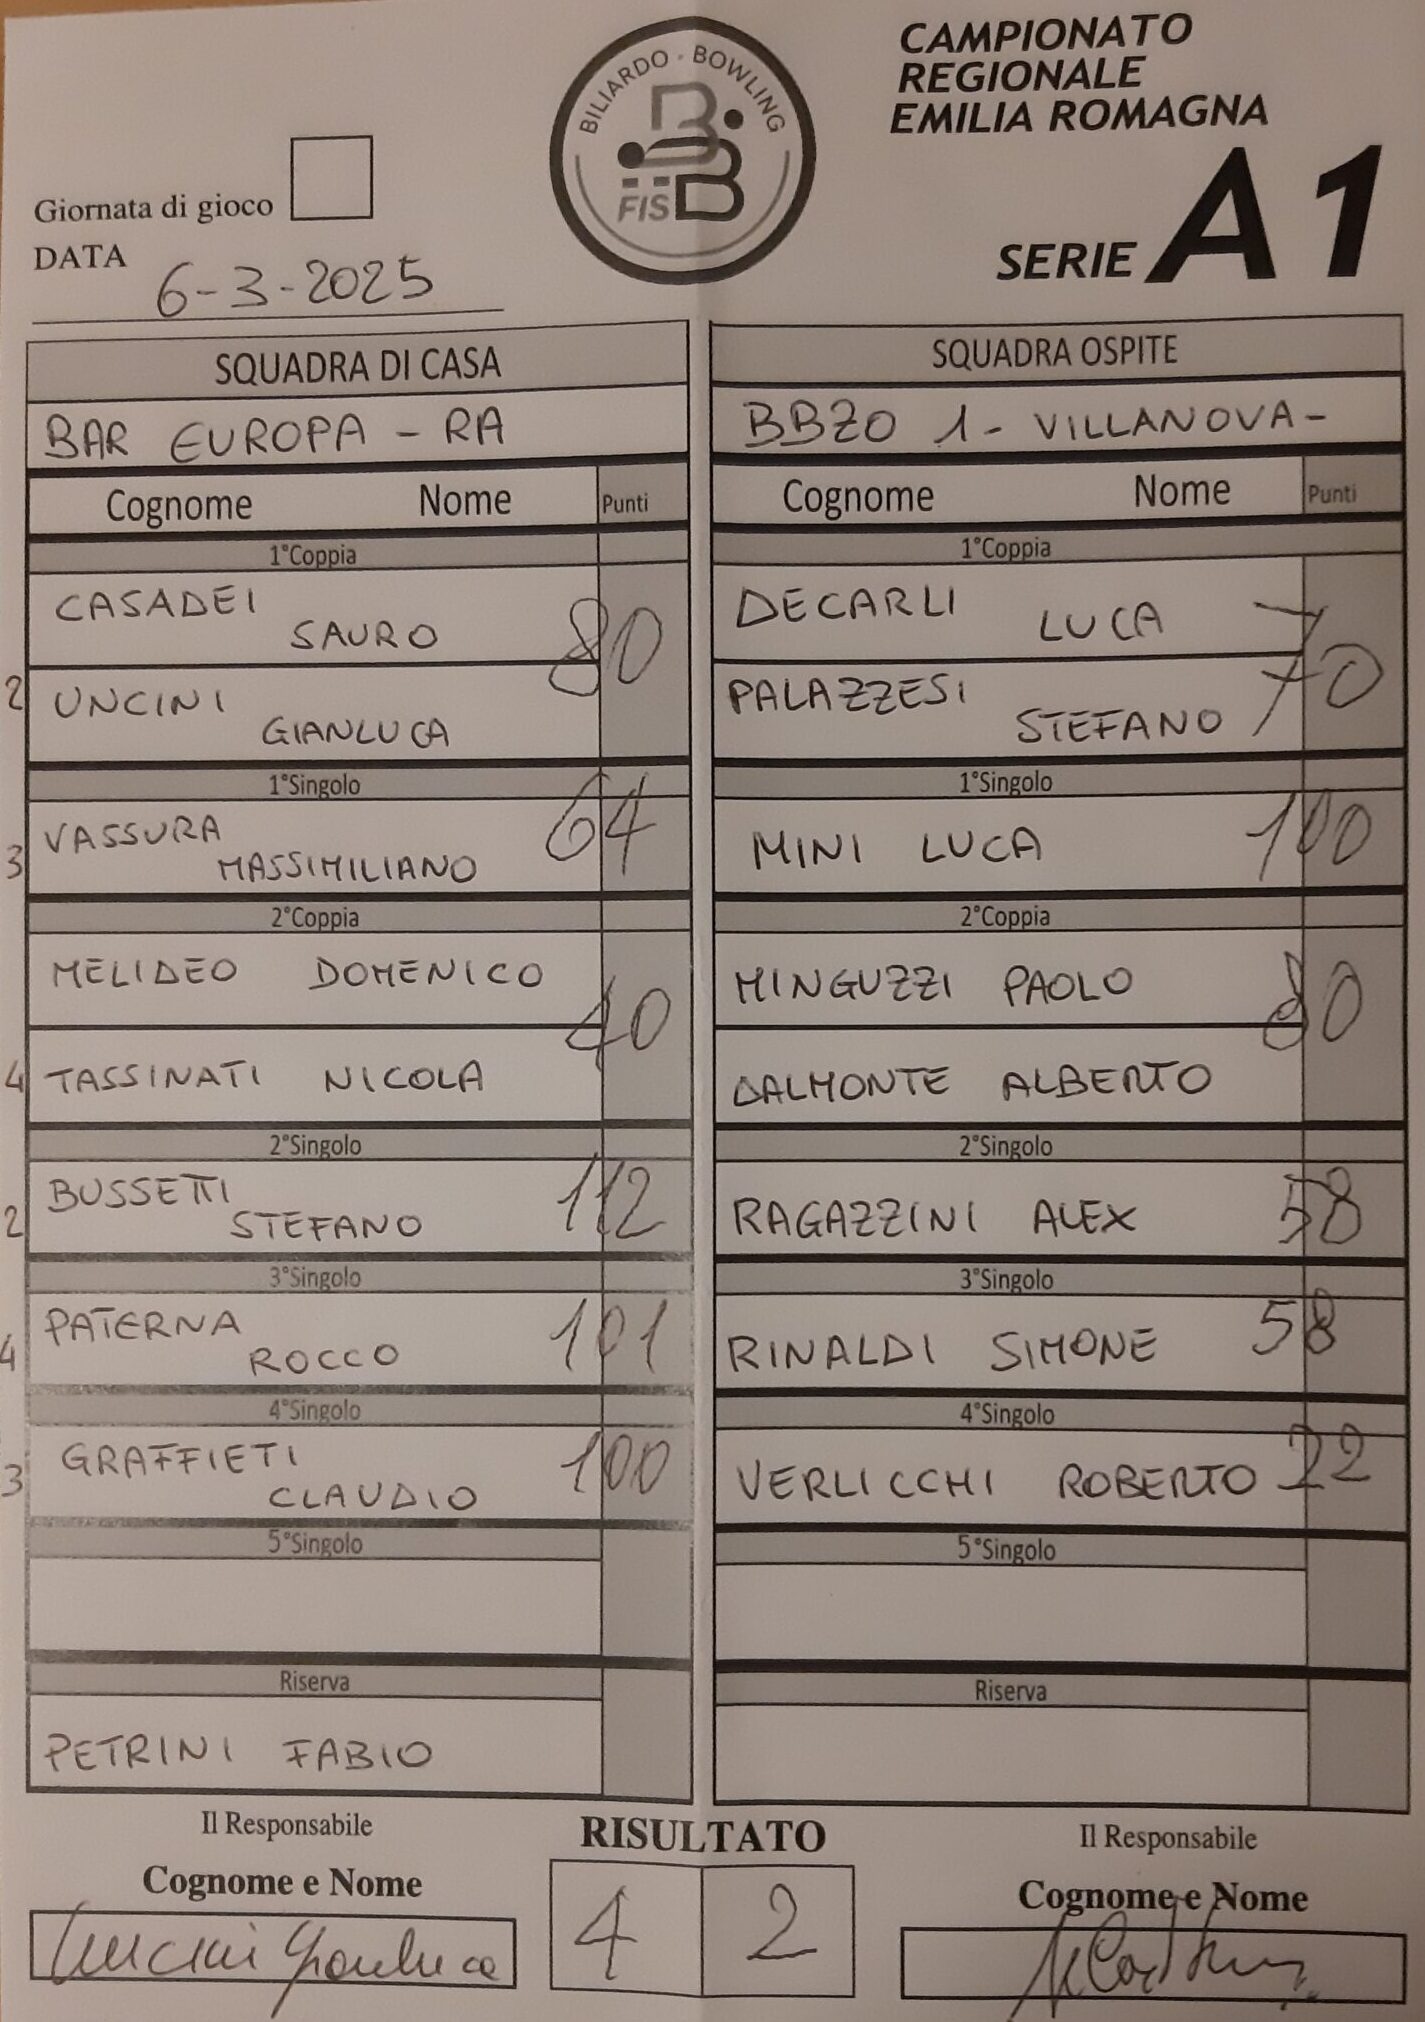 BILIARDO · BOWLING
FISBB
CAMPIONATO
REGIONALE
EMILIA ROMAGNA
SERIE A1
Giornata di gioco
DATA 6-3-2025
SQUADRA DI CASA
BAR EUROPA - RA
Cognome Nome Punti
1°Coppia
CASADEI
SAURO
80
2 UNCINI
GIANLUCA
1°Singolo
VASSURA 64
3 MASSIMILIANO
2°Coppia
MELIDEO DOMENICO
40
4 TASSINATI NICOLA
2°Singolo
BUSSETTI 112
2 STEFANO
3°Singolo
PATERNA 101
4 ROCCO
4°Singolo
GRAFFIETI 100
3 CLAUDIO
5°Singolo
Riserva
PETRINI FABIO
SQUADRA OSPITE
BBZO 1- VILLANOVA-
Cognome Nome Punti
1°Coppia
DECARLI LUCA
70
PALAZZESI
STEFANO
1°Singolo
MINI LUCA 100
2°Coppia
MINGUZZI PAOLO
80
DALMONTE ALBERTO
2°Singolo
RAGAZZINI ALEX 58
3°Singolo
RINALDI SIMONE 58
4°Singolo
VERLICCHI ROBERTO
5°Singolo
Riserva
Il Responsabile
Cognome e Nome
Uncini Gianluca
RISULTATO
4 2
Il Responsabile
Cognome e Nome